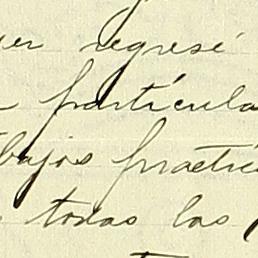 er regresé
partícula
bajos practi
todas las